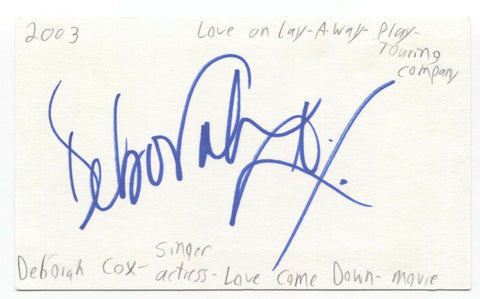 2003 Love on Lay-A-Way- Play-
Touring
company
Deborah Cox
Singer
Deborah Cox- actress- Love Come Down- movie